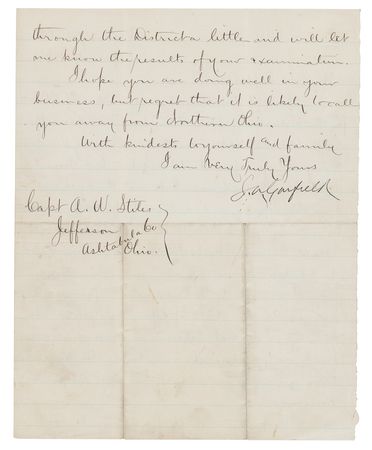 through the District a little and will let
me know the results of your examination.
I hope you are doing well in your
business, but regret that it is likely to call
you away from Northern Ohio.
With kindest to yourself and family
I am Very Truly Yours
J. A. Garfield
Capt A. W. Stiles
Jefferson
Ashtabula Co
Ohio.